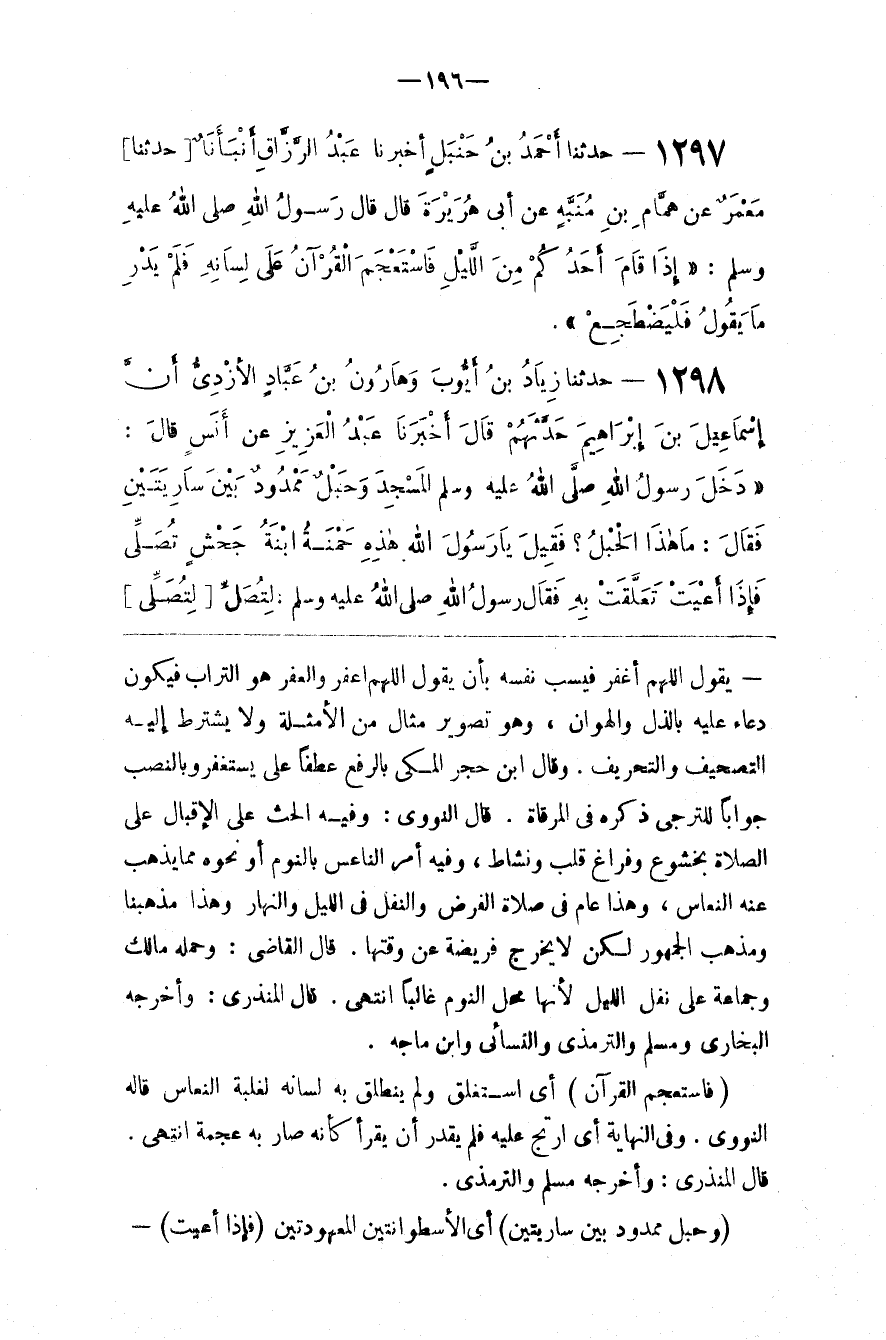 —١٩٦—
١٢٩٧ — حدثنا أَحْمَدُ بنُ حَنْبَلٍ أخبرنا عَبْدُ الرَّزَّاقِ أَنْبَأَنَا [ حدثنا ]
مَعْمَرٌ عن هَمَّامِ بنِ مُنَبِّهٍ عن أبى هُرَيْرَةَ قال قال رَسولُ اللهِ صلى اللهُ عليهِ
وسلم : « إِذَا قَامَ أَحَدُ كُمْ مِنَ اللَّيْلِ فَاسْتَعْجَمَ الْقُرْآنُ عَلَى لِسانِهِ فَلَمْ يَدْرِ
مَا يَقُولُ فَلْيَضْطَجِعْ » .
١٢٩٨ — حدثنا زِيَادُ بنُ أَيُّوبَ وَهَارُونُ بنُ عَبَّادٍ الأزْدِىُّ أَنَّ
إِسْمَاعِيلَ بنَ إِبْرَاهِيمَ حَدَّثَهُمْ قَالَ أَخْبَرَنَا عَبْدُ الْعَزِيزِ عن أَنَسٍ قالَ :
« دَخَلَ رسولُ اللهِ صلَّى اللهُ عليه وسلم المَسْجِدَ وَحَبْلٌ مَمْدُودٌ بَيْنَ سَارِيَتَيْنِ
فَقَالَ : مَاهٰذَا الْحَبْلُ ؟ فَقِيلَ يَارَسُولَ اللهِ هٰذِهِ حَمْنَةُ ابْنَةُ جَحْشٍ تُصَلِّى
فَإِذَا أَعْيَتْ تَعَلَّقَتْ بِهِ فَقال رسولُ اللهِ صلى اللهُ عليه وسلم : لِتُصَلِّ [ لِتُصَلِّى ]
— يقول اللهم أغفر فيسب نفسه بأن يقول اللهم اعفر والعفر هو التراب فيكون
دعاء عليه بالذل والهوان ، وهو تصوير مثال من الأمثلة ولا يشترط إليه
التصحيف والتحريف . وقال ابن حجر المكى بالرفع عطفاً على يستغفر وبالنصب
جواباً للترجى ذكره فى المرقاة . قال النووى : وفيه الحث على الإقبال على
الصلاة بخشوع وفراغ قلب ونشاط ، وفيه أمر الناعس بالنوم أو نحوه مما يذهب
عنه النعاس ، وهذا عام فى صلاة الفرض والنفل فى الليل والنهار وهذا مذهبنا
ومذهب الجمهور لكن لايخرج فريضة عن وقتها . قال القاضى : وحمله مالك
وجماعة على نفل الليل لأنها محل النوم غالباً انتهى . قال المنذرى : وأخرجه
البخارى ومسلم والترمذى والنسائى وابن ماجه .
( فاستعجم القرآن ) أى استغلق ولم ينطلق به لسانه لغلبة النعاس قاله
النووى . وفى النهاية أى ارتج عليه فلم يقدر أن يقرأ كأنه صار به عجمة انتهى .
قال المنذرى : وأخرجه مسلم والترمذى .
( وحبل ممدود بين ساريتين ) أى الأسطوانتين المعهودتين ( فإذا أعيت ) —